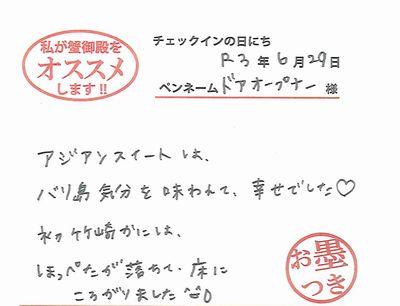 私が蟹御殿を
オススメ
します!!
チェックインの日にち
R3年6月29日
ペンネーム ドアオープナー 様
アジアンスイートは、
バリ島気分を味わえて、幸せでした♡
竹崎かには、
ほっぺたが落ちて、床に
ころがりました
お墨
つき